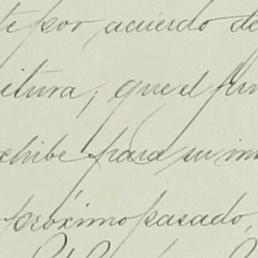 te por acuerdo de
itura; que el fun
chibe para su in
próximo pasado,